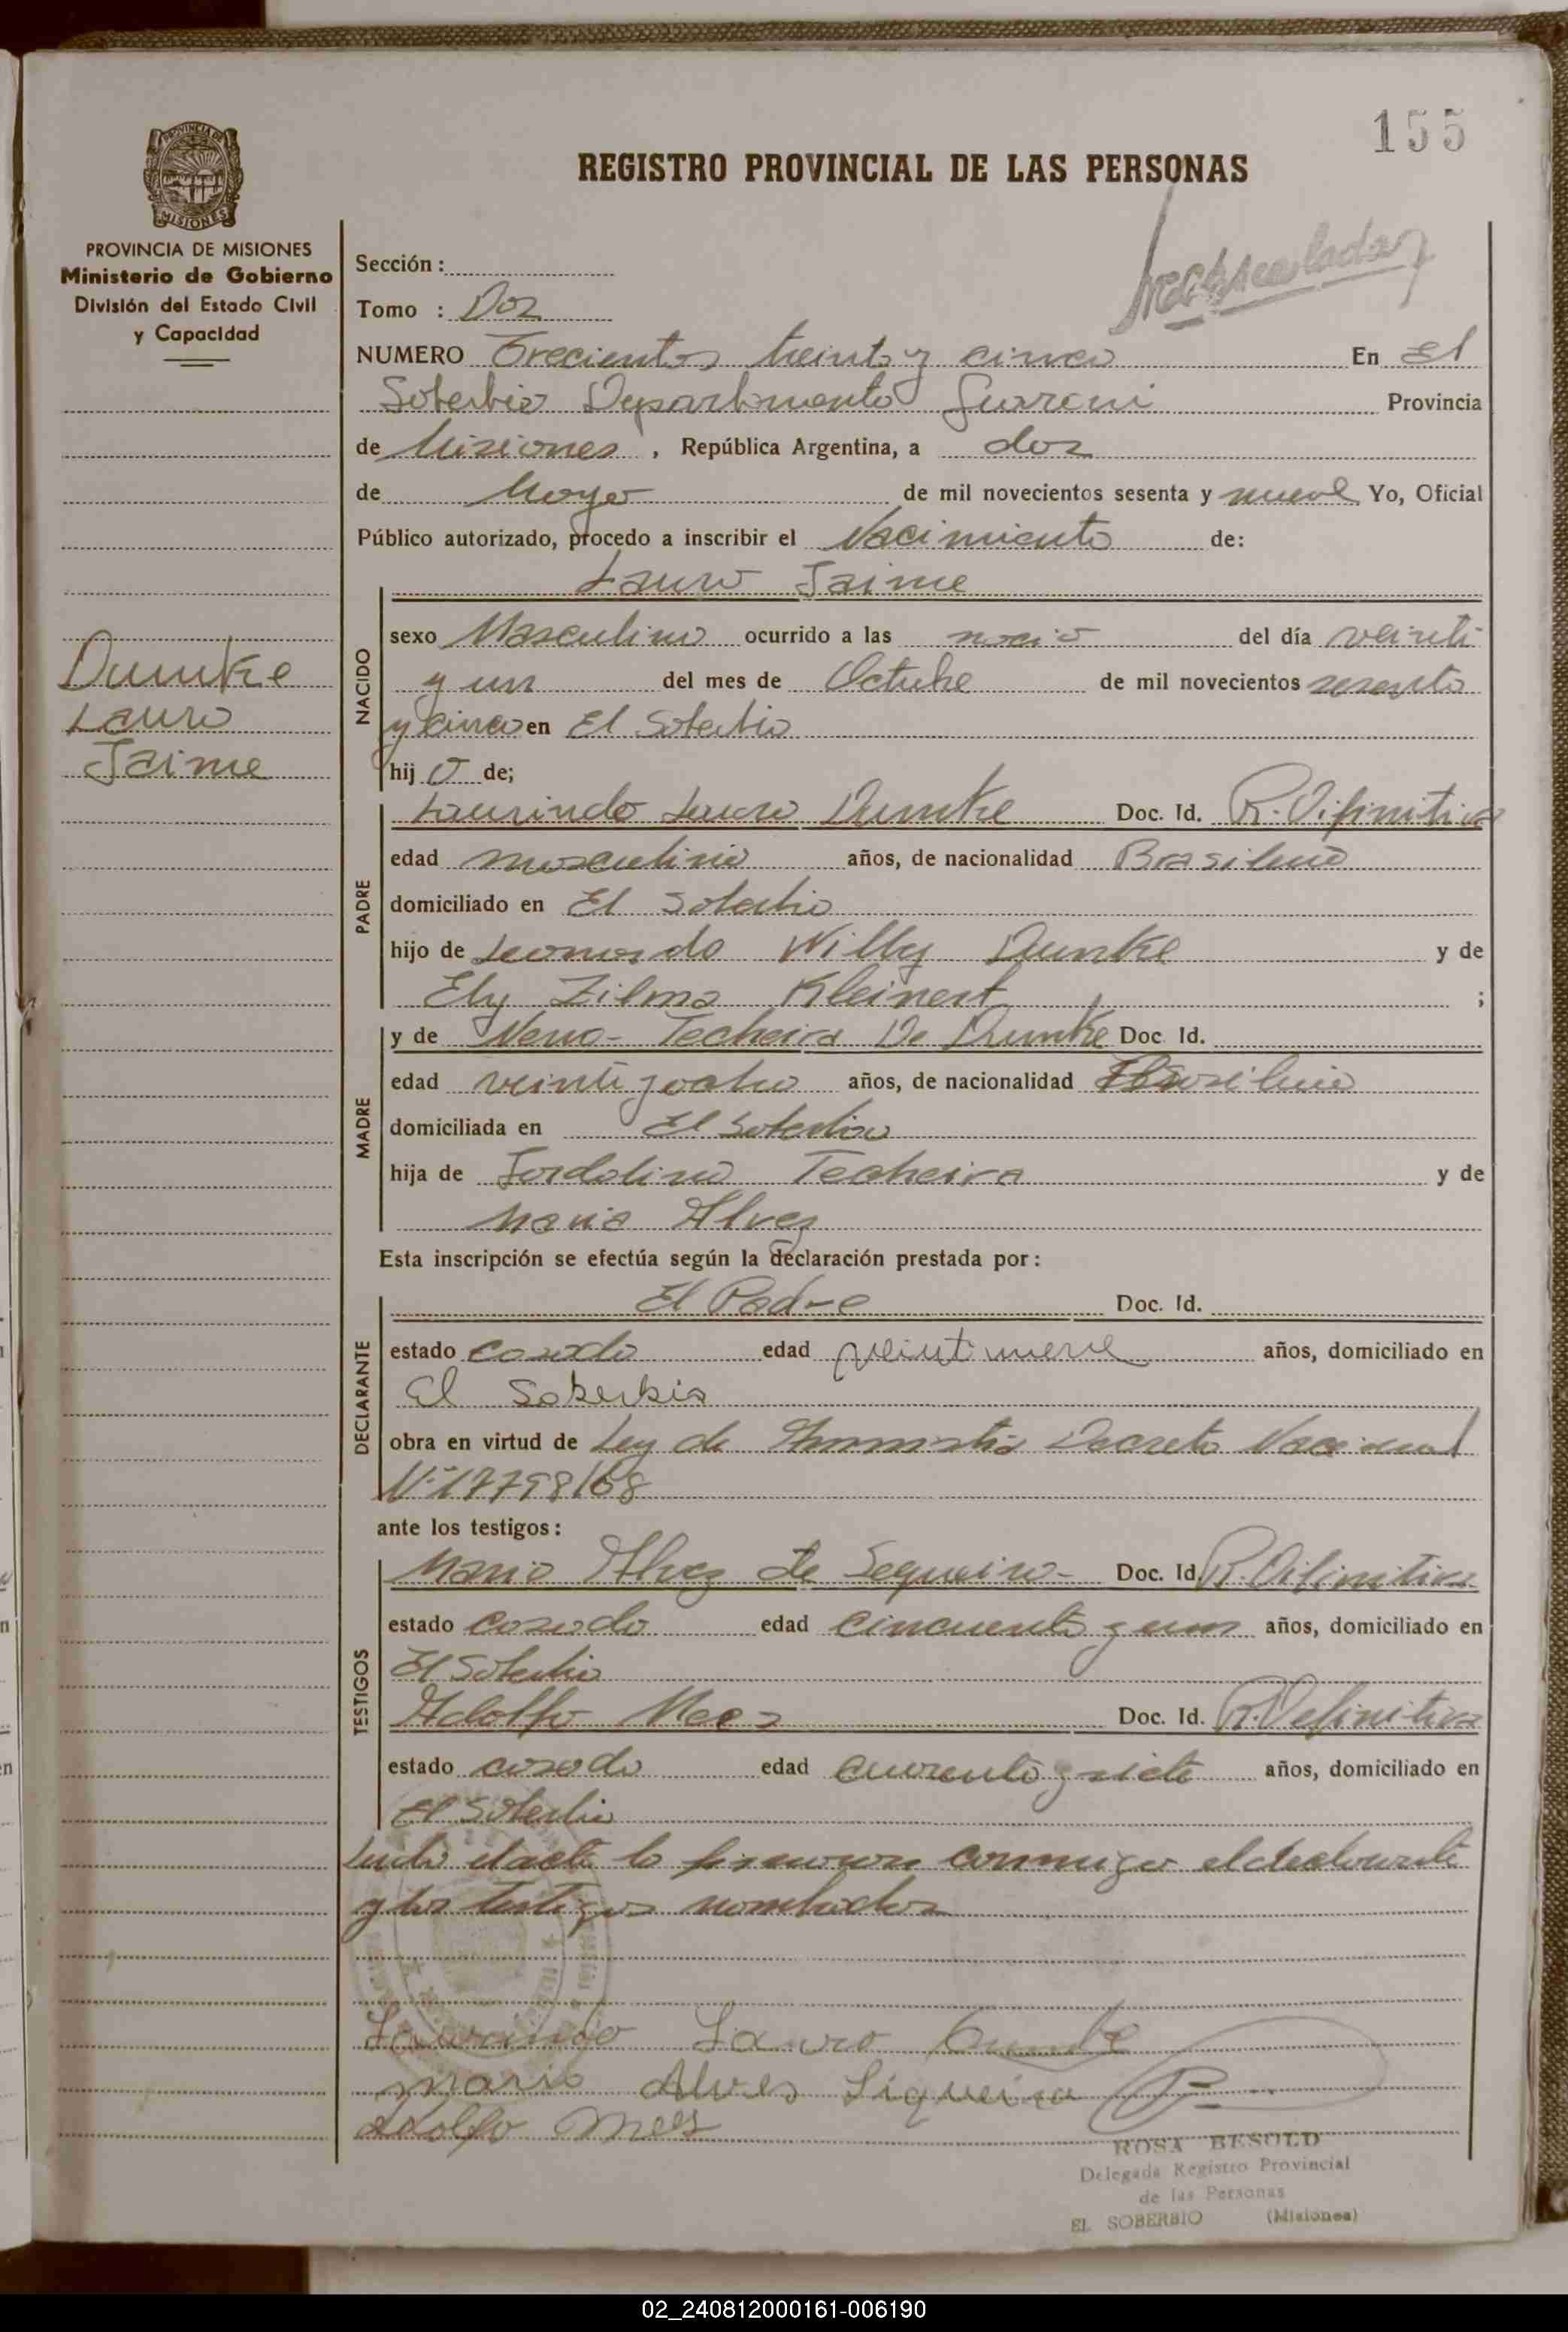 155
REGISTRO PROVINCIAL DE LAS PERSONAS
PROVINCIA DE MISIONES
PROVINCIA DE MISIONES
Ministerio de Gobierno
División del Estado Civil
y Capacidad
Sección :
Tomo : Dos
NUMERO Trecientos treinta y cinco En El
Soberbio Departamento Guarani Provincia
de Misiones , República Argentina, a dos
de Mayo de mil novecientos sesenta y nueve Yo, Oficial
Público autorizado, procedo a inscribir el Nacimiento de:
Lauro Jaime
Dumke
Lauro
Jaime
NACIDO
sexo Masculino ocurrido a las del día veinti
y un del mes de Octubre de mil novecientos sesenta
y cinco en El Soberbio
hij o de;
PADRE
Laurindo Lauro Dumke Doc. Id. R. Difinitiva
edad masculino años, de nacionalidad Brasileno
domiciliado en El Soberbio
hijo de Leonardo Willy Dumke y de
Ely Zilma Kleinert ;
MADRE
y de Techeira De Dumke Doc. Id.
edad veintiquatro años, de nacionalidad Brasilenia
domiciliada en El Soberbio
hija de Techeira y de
Maria Alvez
Esta inscripción se efectúa según la declaración prestada por :
DECLARANTE
El Padre Doc. Id.
estado casado edad veintinueve años, domiciliado en
El Soberbio
obra en virtud de Ley de Decreto Nacional
Nº 17798/68
ante los testigos :
TESTIGOS
Mario Alvez de Sequeira - Doc. Id. R. Difinitiva
estado casado edad cincuenta y un años, domiciliado en
El Soberbio
Adolfo Mees Doc. Id. R. Definitiva
estado casado edad cuarenta y siete años, domiciliado en
El Soberbio
Leida el acta la firmaron conmigo el declarante
y los testigos nombrados
Laurindo Lauro Dumke
Mario Alves Siqueira
Adolfo Mees
ROSA BESOLD
Delegada Registro Provincial
de las Personas
EL SOBERBIO (Misiones)
02_240812000161-006190